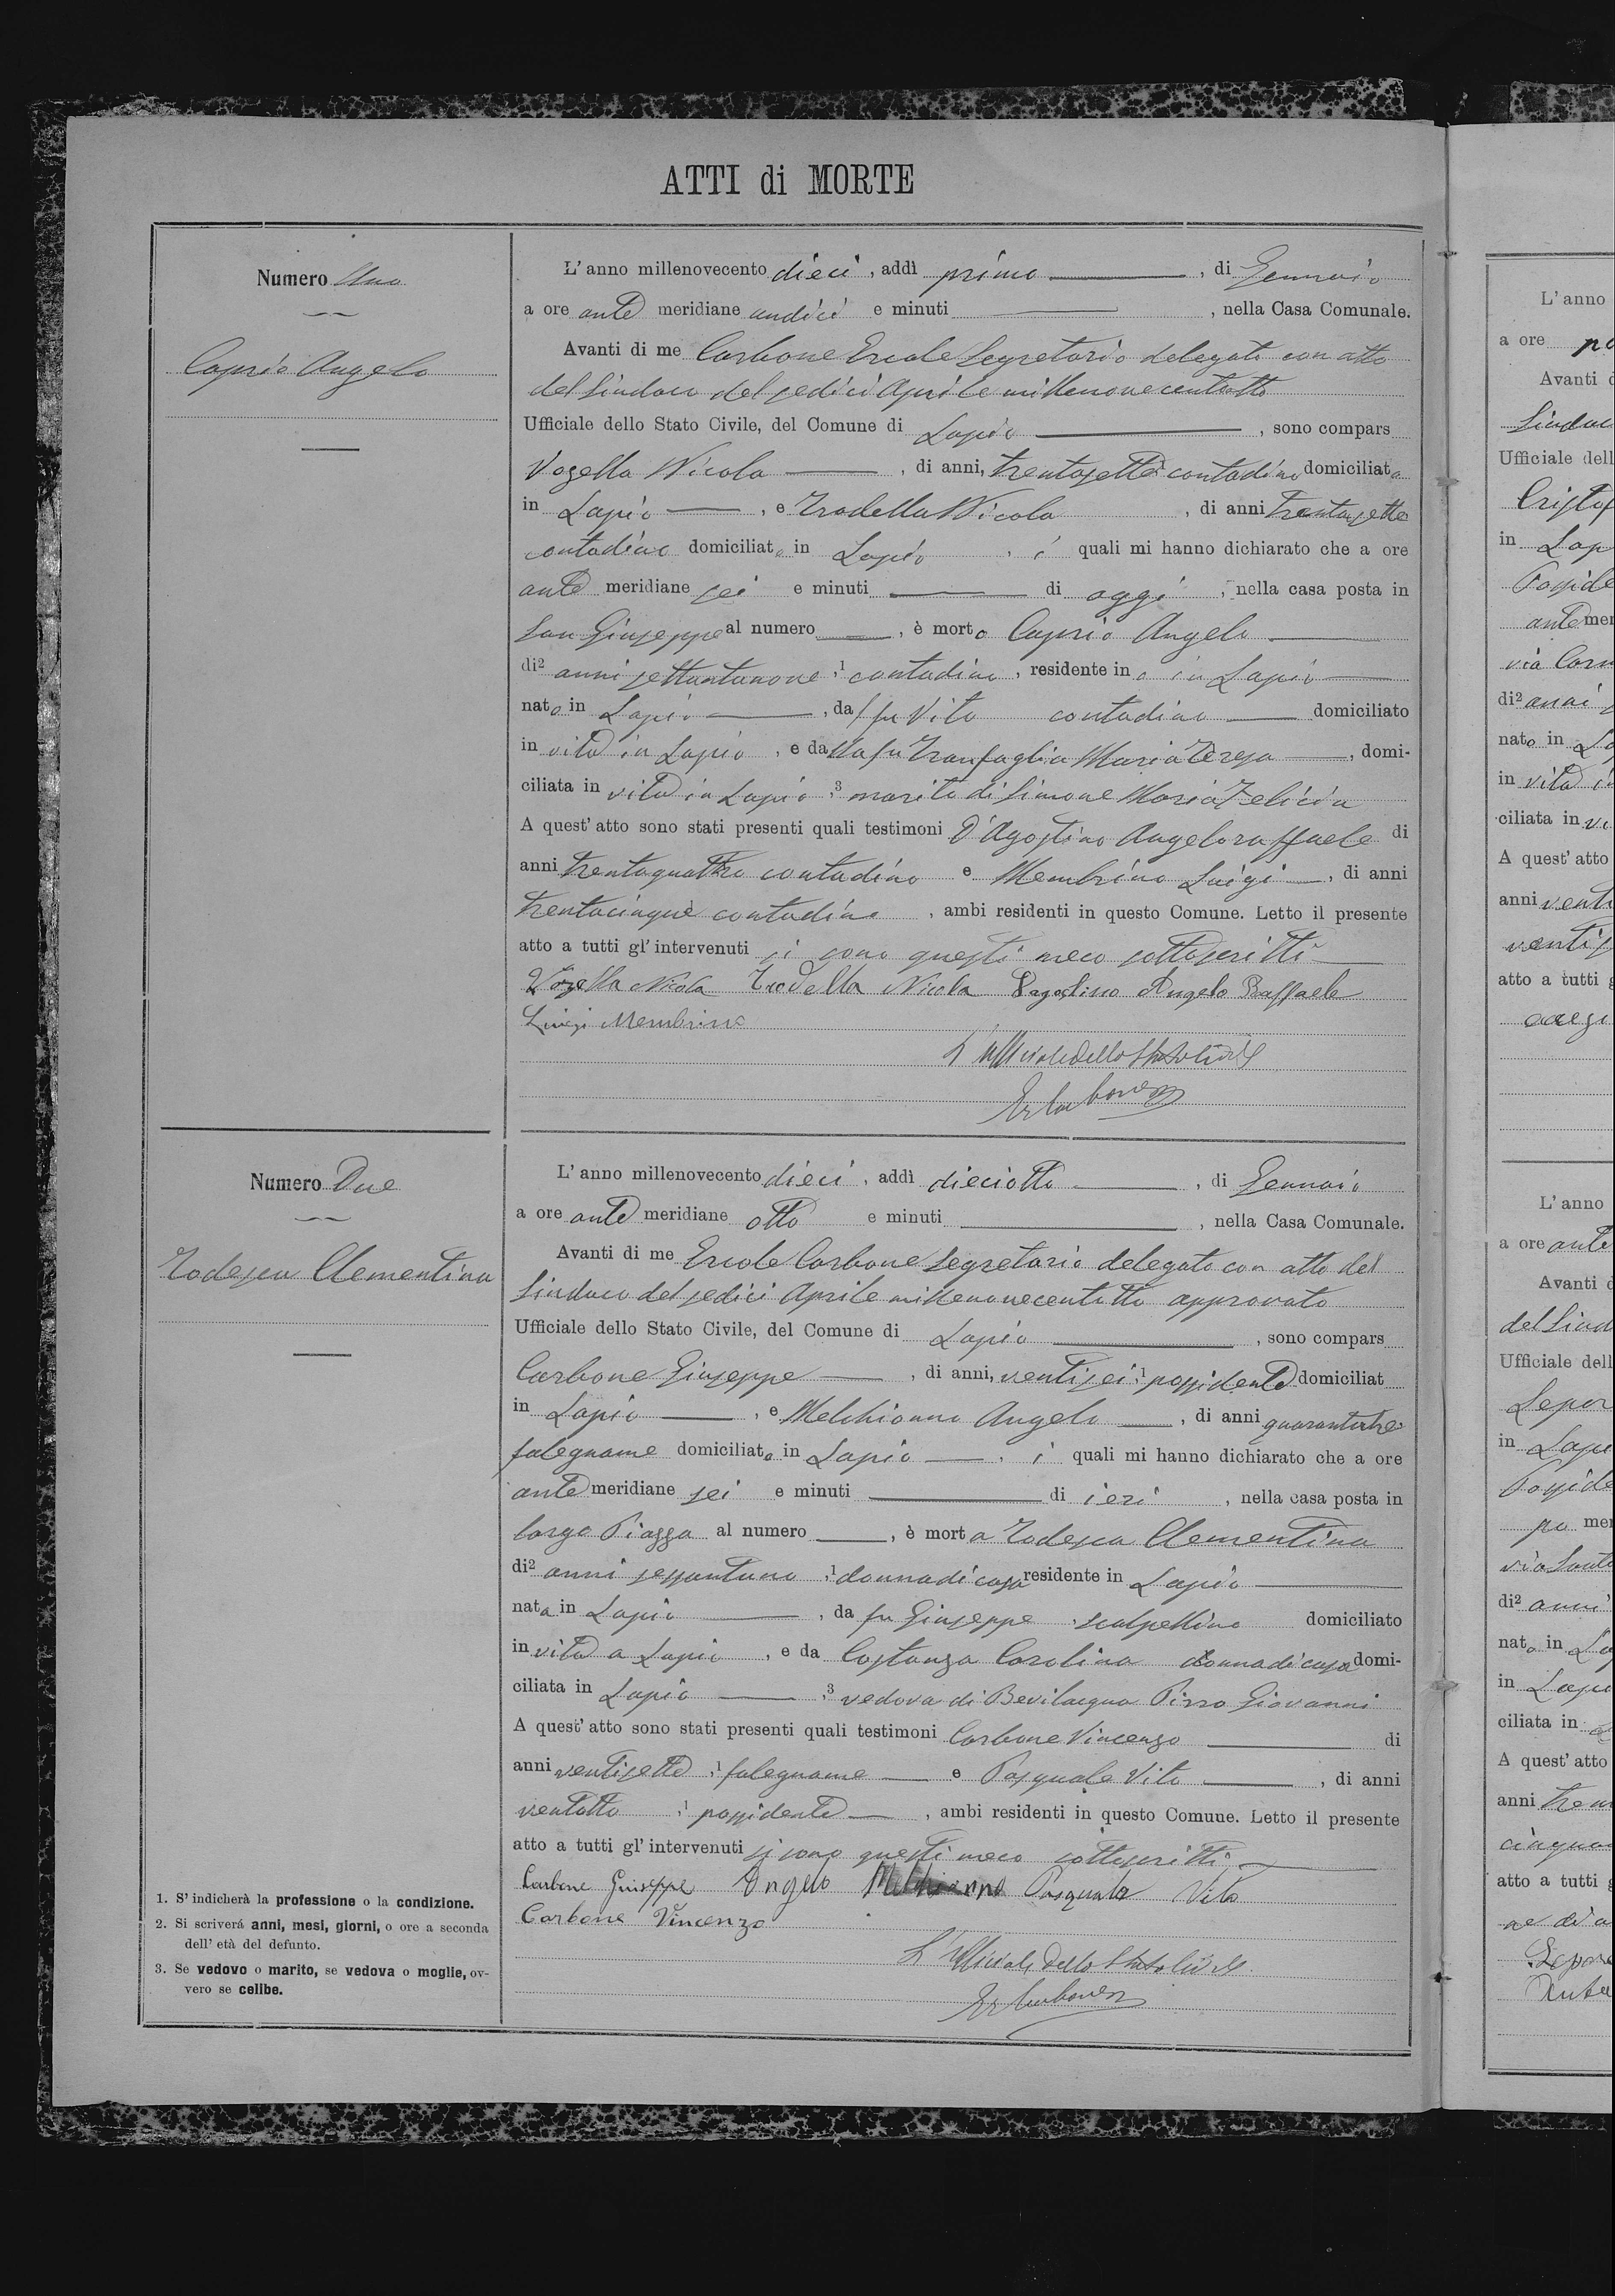 ATTI di MORTE
Numero Uno
Caprio Angelo
L'anno millenovecento dieci, addì primo, di Gennaio
a ore ante meridiane undici e minuti, nella Casa Comunale.
Avanti di me Carbone Ercole Segretario delegato con atto
del Sindaco del sedici Aprile millenovecentotto
Ufficiale dello Stato Civile, del Comune di Lapio, sono compars
Vozella Nicola, di anni, trentasette contadino domiciliato
in Lapio, e Trodella Nicola, di anni trentasette
contadino domiciliato in Lapio, i quali mi hanno dichiarato che a ore
ante meridiane sei e minuti di oggi, nella casa posta in
San Giuseppe al numero, è morto Caprio Angelo
di2 anni settantanove, 1 contadino, residente in Lapio
nato in Lapio, da fu Vito contadino domiciliato
in vita in Lapio, e dalla fu Tranfaglia Maria Teresa, domi-
ciliata in vita in Lapio, 3 marito di Simone Maria Felicia
A quest'atto sono stati presenti quali testimoni D'Agostino Angeloraffaele di
anni trentaquattro contadino e Membrino Luigi, di anni
trentacinque contadino, ambi residenti in questo Comune. Letto il presente
atto a tutti gl'intervenuti si sono questi meco sottoscritti
Vozella Nicola Trodella Nicola Dagostino Angelo Raffaele
Luigi Membrino
L'Ufficiale dello Stato Civile
Er Carbone
Numero Due
Todesca Clementina
L'anno millenovecento dieci, addì dieciotto, di Gennaio
a ore ante meridiane otto e minuti, nella Casa Comunale.
Avanti di me Ercole Carbone Segretario delegato con atto del
Sindaco del sedici Aprile millenovecentotto approvato
Ufficiale dello Stato Civile, del Comune di Lapio, sono compars
Carbone Giuseppe, di anni, ventisei, 1 possidente domiciliat
in Lapio, e Melchionno Angelo, di anni quarantatre
falegname domiciliato in Lapio, i quali mi hanno dichiarato che a ore
ante meridiane sei e minuti di ieri, nella casa posta in
largo Piazza al numero, è morta Todesca Clementina
di2 anni sessantuno, 1 donna di casa residente in Lapio
nata in Lapio, da fu Giuseppe, scalpellino domiciliato
in vita a Lapio, e da Costanza Carolina donna di casa domi-
ciliata in Lapio, 3 vedova di Bevilacqua Pirro Giovanni
A quest'atto sono stati presenti quali testimoni Carbone Vincenzo di
anni ventisette, 1 falegname e Pasquale Vito, di anni
ventotto, 1 possidente, ambi residenti in questo Comune. Letto il presente
atto a tutti gl'intervenuti si sono questi meco sottoscritti
Carbone Giuseppe Angelo Melchionno Pasquale Vito
Carbone Vincenzo
L'Ufficiale dello Stato Civile
Er Carbone
1. S'indicherà la professione o la condizione.
2. Si scriverá anni, mesi, giorni, o ore a seconda
dell'età del defunto.
3. Se vedovo o marito, se vedova o moglie, ov-
vero se celibe.
L'anno
a ore
Avanti
Ufficiale dell
in Lap
ante mer
di2 anni
nato in
in vita
ciliata in
A quest'atto
anni
atto a tutti
L'anno
a ore ante
Avanti
del Sind
Ufficiale dell
in
di2 anni
nato in
in
ciliata in
A quest'atto
anni
atto a tutti